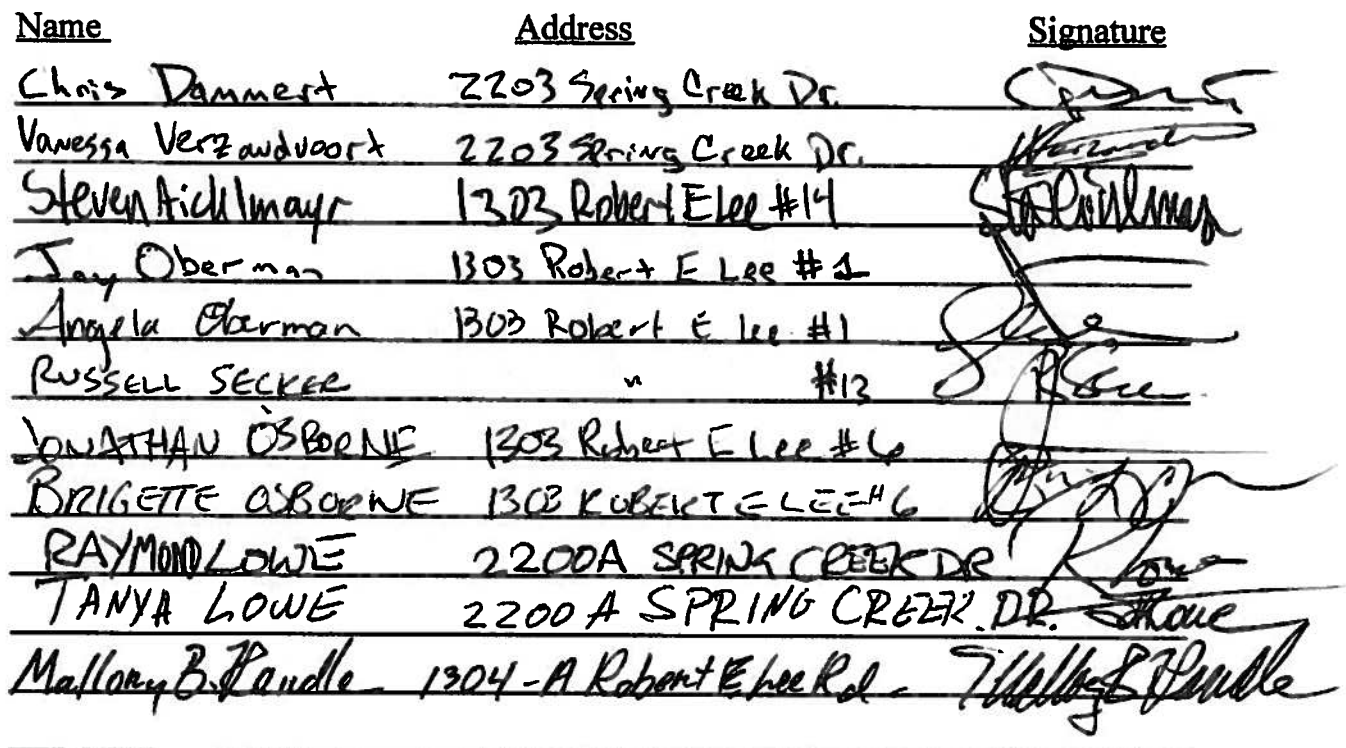 Name Address Signature
Chris Dammert 2203 Spring Creek Dr.
Vanessa Verzandvoort 2203 Spring Creek Dr.
Steven Aichlmayr 1303 Robert E Lee #14
Jay Oberman 1303 Robert E Lee #1
Angela Oberman 1303 Robert E lee #1
RUSSELL SECKER " #13 R Secker
JONATHAN OSBORNE 1303 Robert E Lee #6
BRIGETTE OSBORNE 1303 ROBERT E LEE #6
RAYMOND LOWE 2200A SPRING CREEK DR R Lowe
TANYA LOWE 2200 A SPRING CREEK. DR. Lowe
Mallory B. Randle 1304-A Robert E Lee Rd. Mallory B Randle